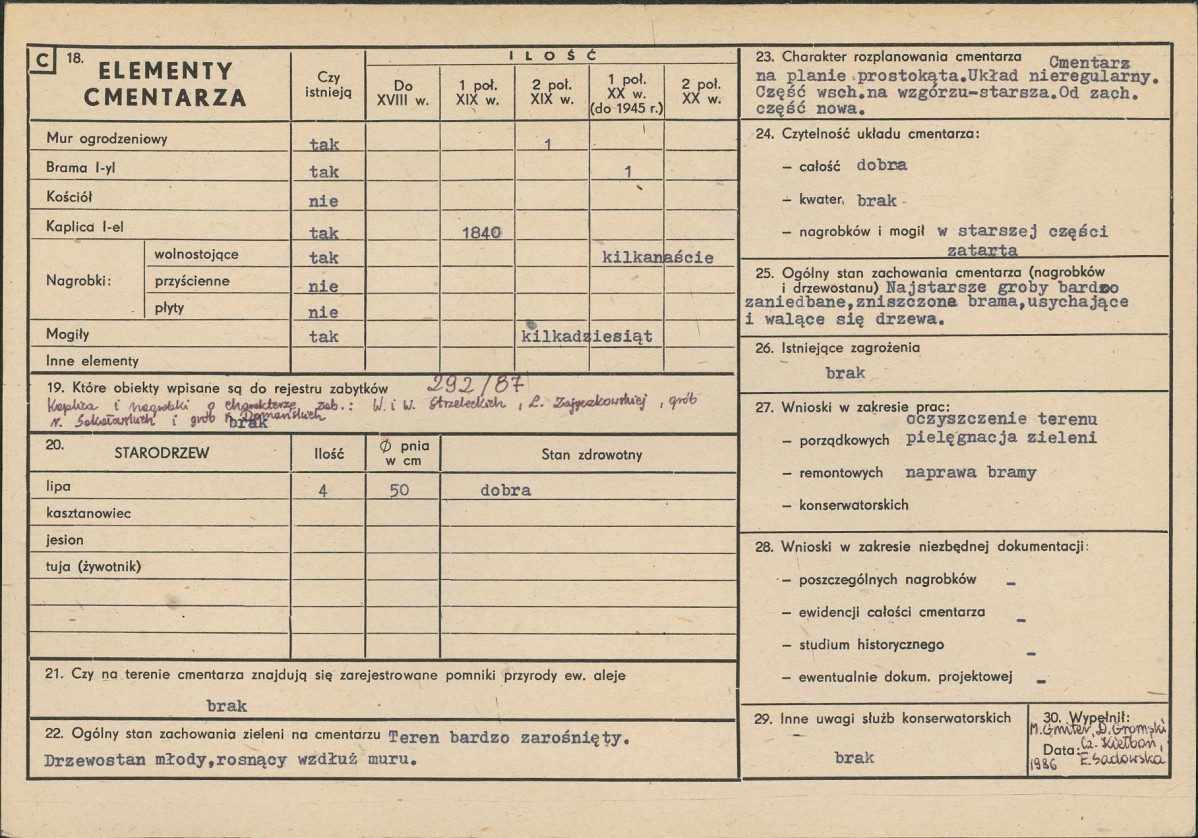 C 18. ELEMENTY CMENTARZA
Czy istnieją
ILOŚĆ
Do XVIII w.
1 poł. XIX w.
2 poł. XIX w.
1 poł. XX w. (do 1945 r.)
2 poł. XX w.
Mur ogrodzeniowy tak 1
Brama I-yl tak 1
Kościół nie
Kaplica I-el tak 1840
Nagrobki: wolnostojące tak kilkanaście
przyścienne nie
płyty nie
Mogiły tak kilkadziesiąt
Inne elementy
19. Które obiekty wpisane są do rejestru zabytków 292/87
Kaplica i nagrobki o charakterze zab.: W. i W. Strzeleckich, L. Zajączkowskiej, grób
r. Sokołowskich i grób Domańskich
brak
20. STARODRZEW Ilość Ø pnia w cm Stan zdrowotny
lipa 4 50 dobra
kasztanowiec
jesion
tuja (żywotnik)
21. Czy na terenie cmentarza znajdują się zarejestrowane pomniki przyrody ew. aleje
brak
22. Ogólny stan zachowania zieleni na cmentarzu Teren bardzo zarośnięty.
Drzewostan młody,rosnący wzdłuż muru.
23. Charakter rozplanowania cmentarza Cmentarz
na planie prostokąta.Układ nieregularny.
Część wsch.na wzgórzu-starsza.Od zach.
część nowa.
24. Czytelność układu cmentarza:
– całość dobra
– kwater, brak -
– nagrobków i mogił w starszej części
zatarta
25. Ogólny stan zachowania cmentarza (nagrobków
i drzewostanu) Najstarsze groby bardzo
zaniedbane,zniszczona brama,usychające
i walące się drzewa.
26. Istniejące zagrożenia
brak
27. Wnioski w zakresie prac:
oczyszczenie terenu
– porządkowych pielęgnacja zieleni
– remontowych naprawa bramy
– konserwatorskich
28. Wnioski w zakresie niezbędnej dokumentacji:
– poszczególnych nagrobków –
– ewidencji całości cmentarza –
– studium historycznego –
– ewentualnie dokum. projektowej –
29. Inne uwagi służb konserwatorskich
brak
30. Wypełnił:
M. Gmiter, D. Gromski
Cz. Kiełboń,
Data: 1986 E. Sadowska